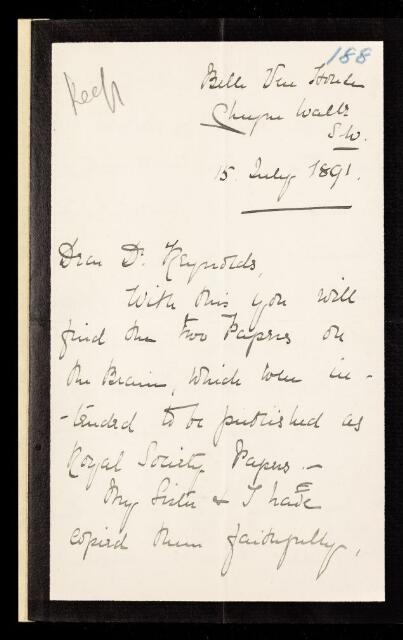 188
Belle Vue House
Cheyne Walk
S.W.
15 July 1891.
Dear Dr. Reynolds,
With this you will
find the two Papers on
the Brain, which were in-
-tended to be published as
Royal Society Papers.—
My Sister & I have
copied them faithfully,